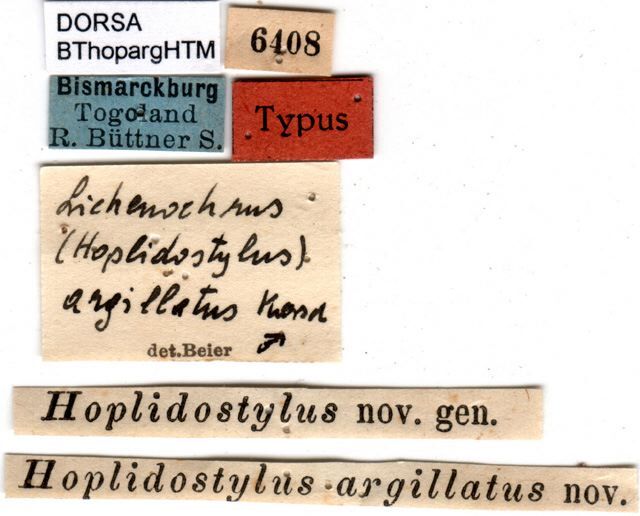 DORSA
BThopargHTM
6408
Bismarckburg
Togoland
R. Büttner S.
Typus
Lichenochrus
(Hoplidostylus)
argillatus Karsch
det.Beier ♂
Hoplidostylus nov. gen.
Hoplidostylus argillatus nov.